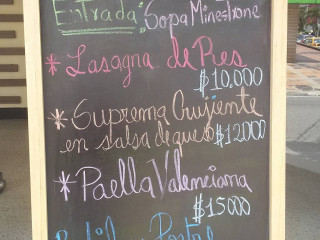 Entrada: Sopa Minestrone
* Lasagna de Res
$10.000
* Suprema Crujiente
en salsa de queso $12000
* Paella Valenciana
$15000